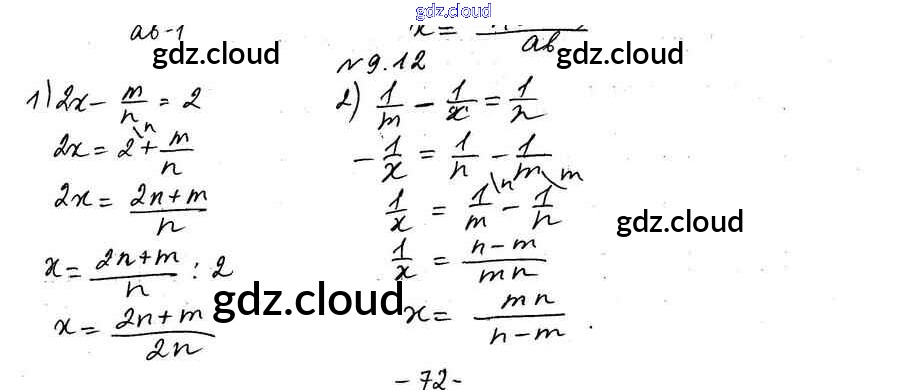 gdz.cloud
ab-1
x = ab
gdz.cloud
gdz.cloud
№9.12
1) 2x - m/n = 2
2x = 2\n + m/n
2x = (2n+m)/n
x = (2n+m)/n : 2
x = (2n+m)/2n
gdz.cloud
2) 1/m - 1/x = 1/n
- 1/x = 1/n - 1/m
1/x = 1/m\n - 1/n\m
1/x = (n-m)/mn
x = mn/(n-m).
gdz.cloud
- 72 -